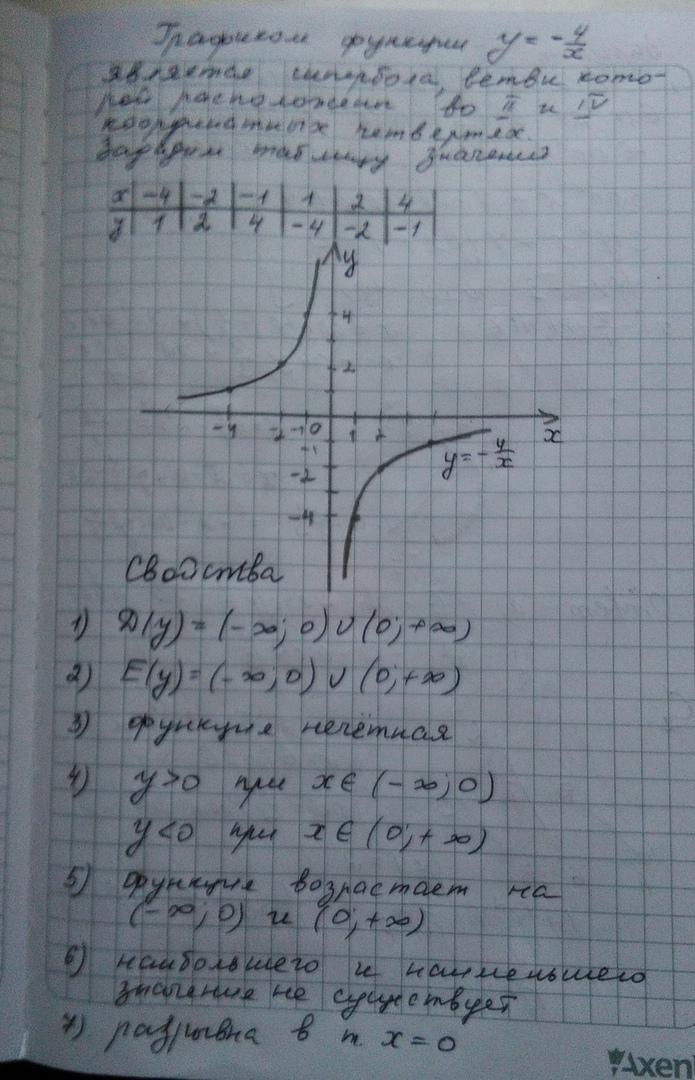 Графиком функции y = -4/x
является гипербола, ветви кото-
рой расположены во II и IV
координатных четвертях.
Зададим таблицу значений
x -4 -2 -1 1 2 4
y 1 2 4 -4 -2 -1
y
4
2
-4 -2 -1 0 1 2 x
-1
y = -4/x
-2
-4
Свойства
1) D(y) = (-∞; 0) ∪ (0; +∞)
2) E(y) = (-∞; 0) ∪ (0; +∞)
3) функция нечётная
4) y > 0 при x ∈ (-∞; 0)
y < 0 при x ∈ (0; +∞)
5) функция возрастает на
(-∞; 0) и (0; +∞)
6) наибольшего и наименьшего
значение не существует
7) разрывна в т. x = 0
Axen